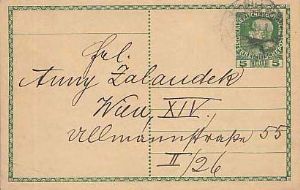 Frl.
Anny Zalaudek
Wien, XIV.
Ullmannstraße 55
II/26
5 5